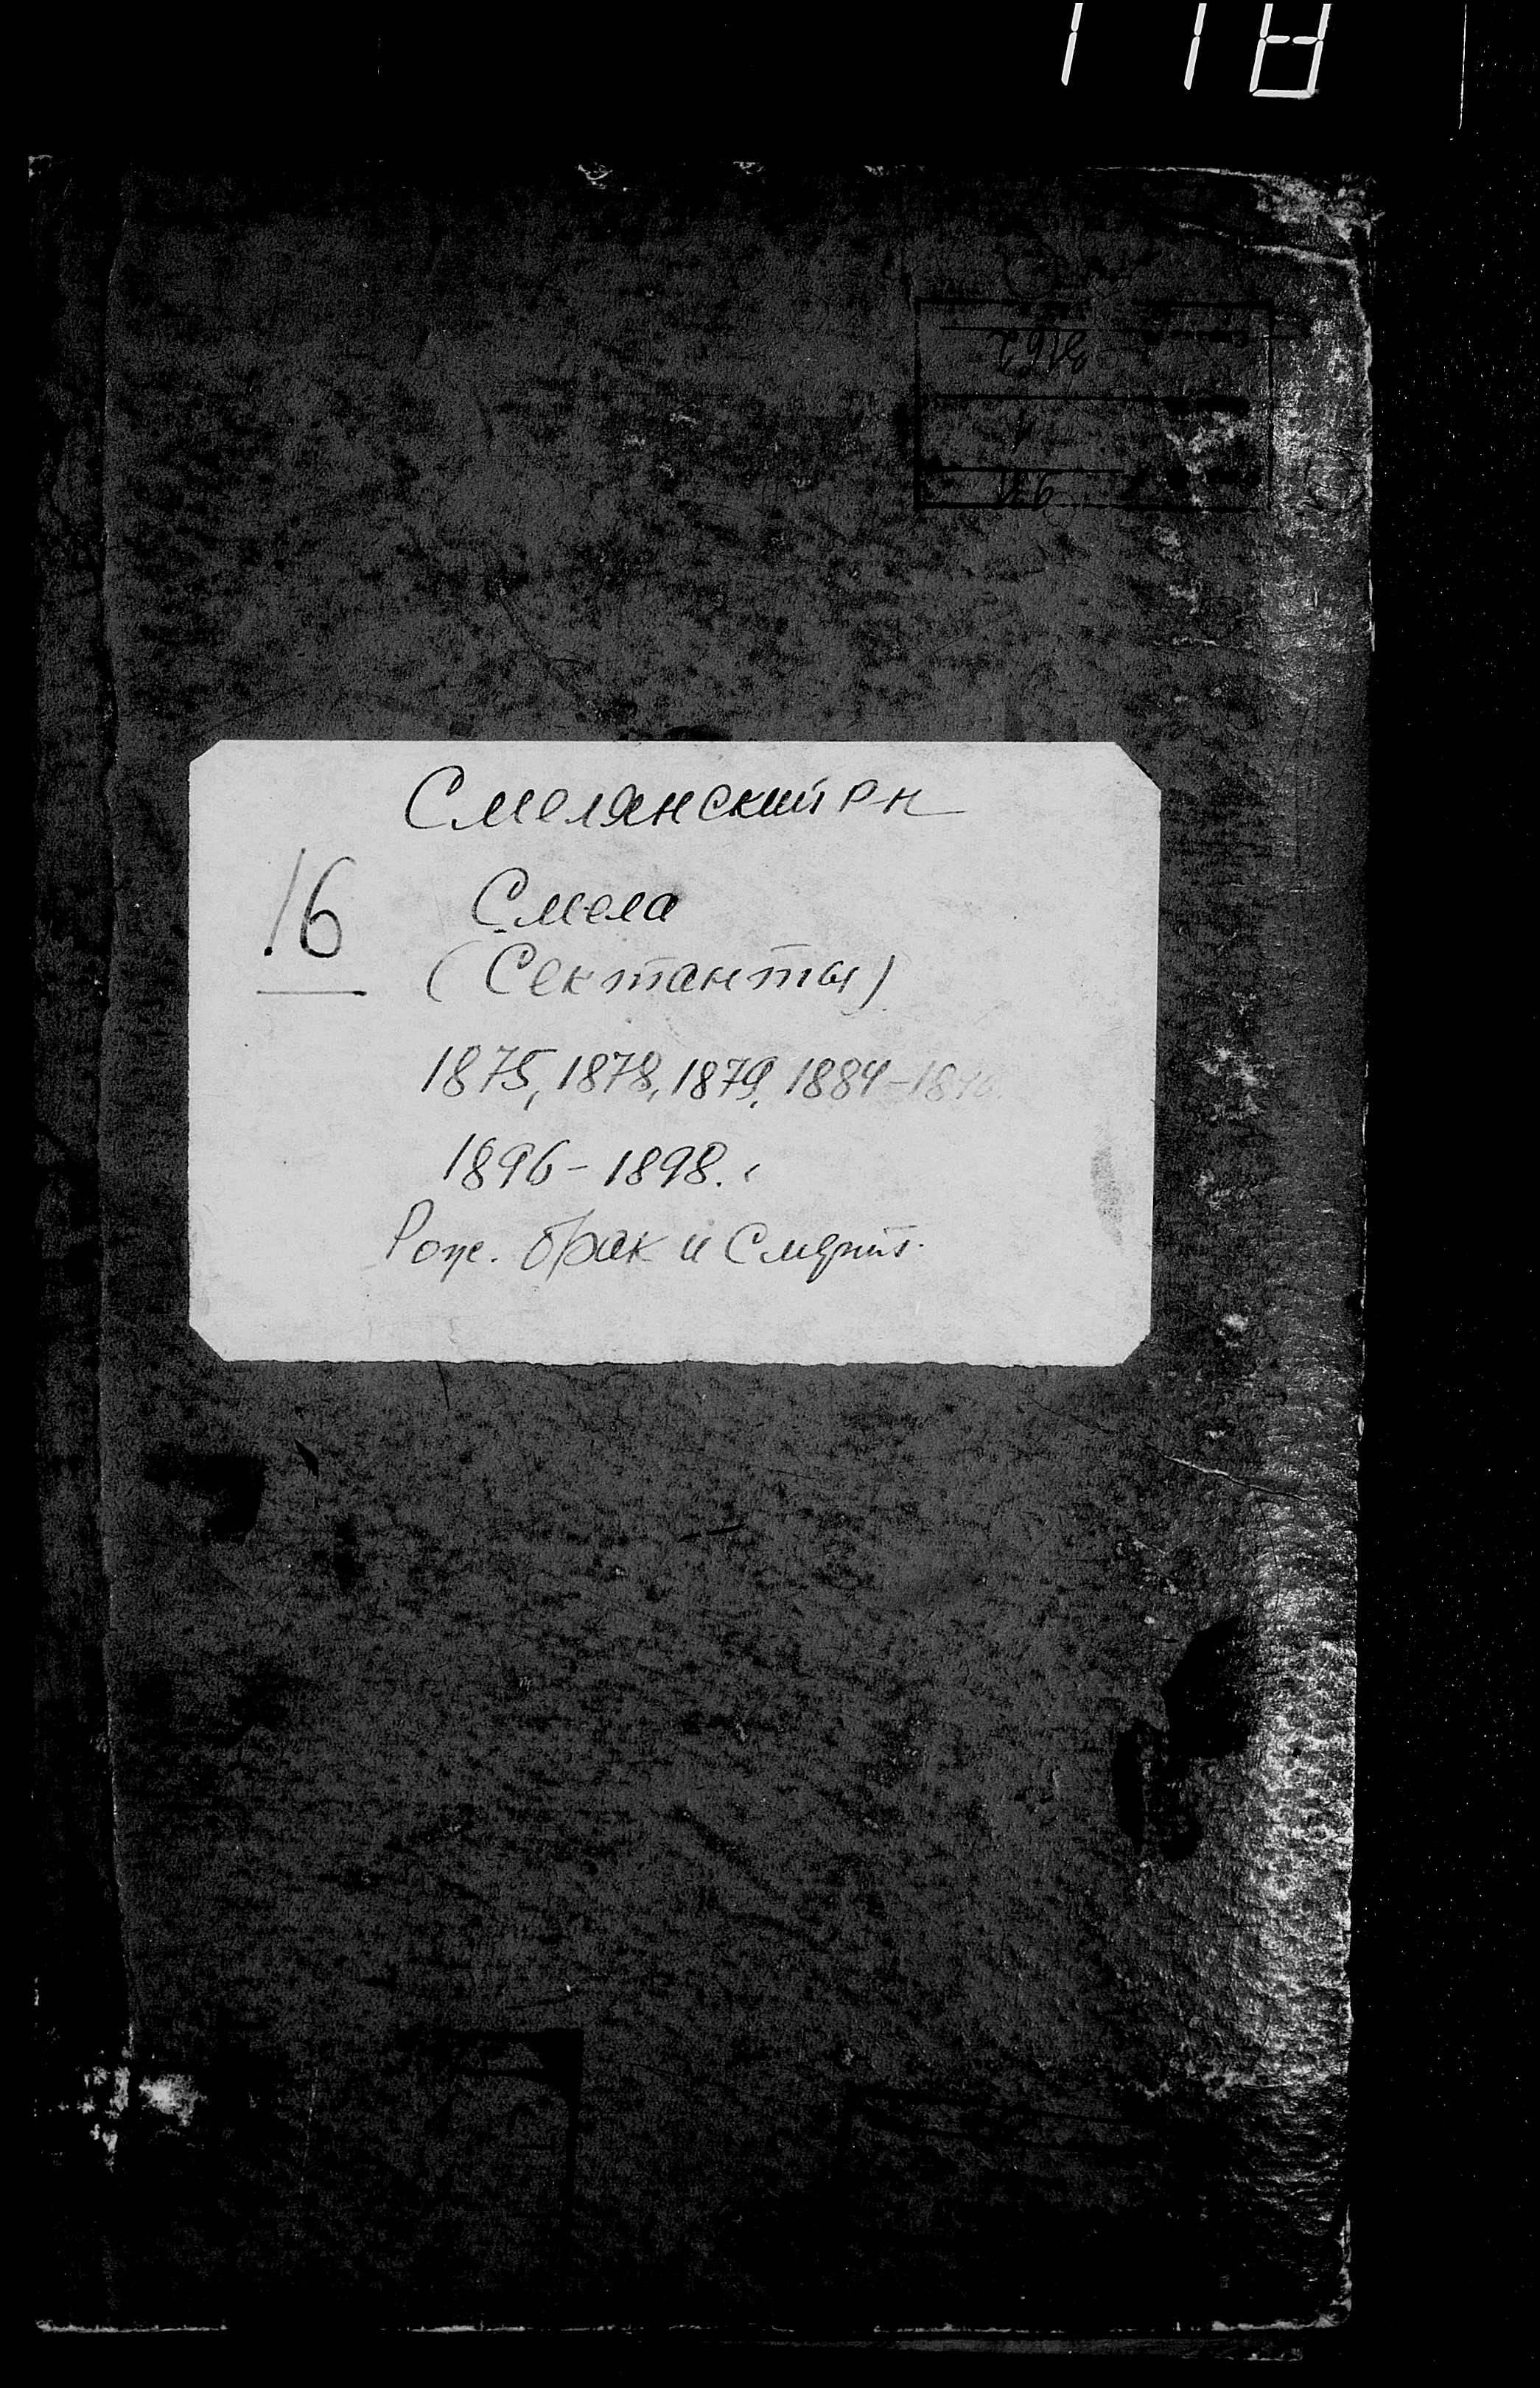 118
931
1
3162
Смелянский р-н
16
Смела
(Сектанты)
1875, 1878, 1879, 1884-
1896-1898.
Рож. брак и Смерть.